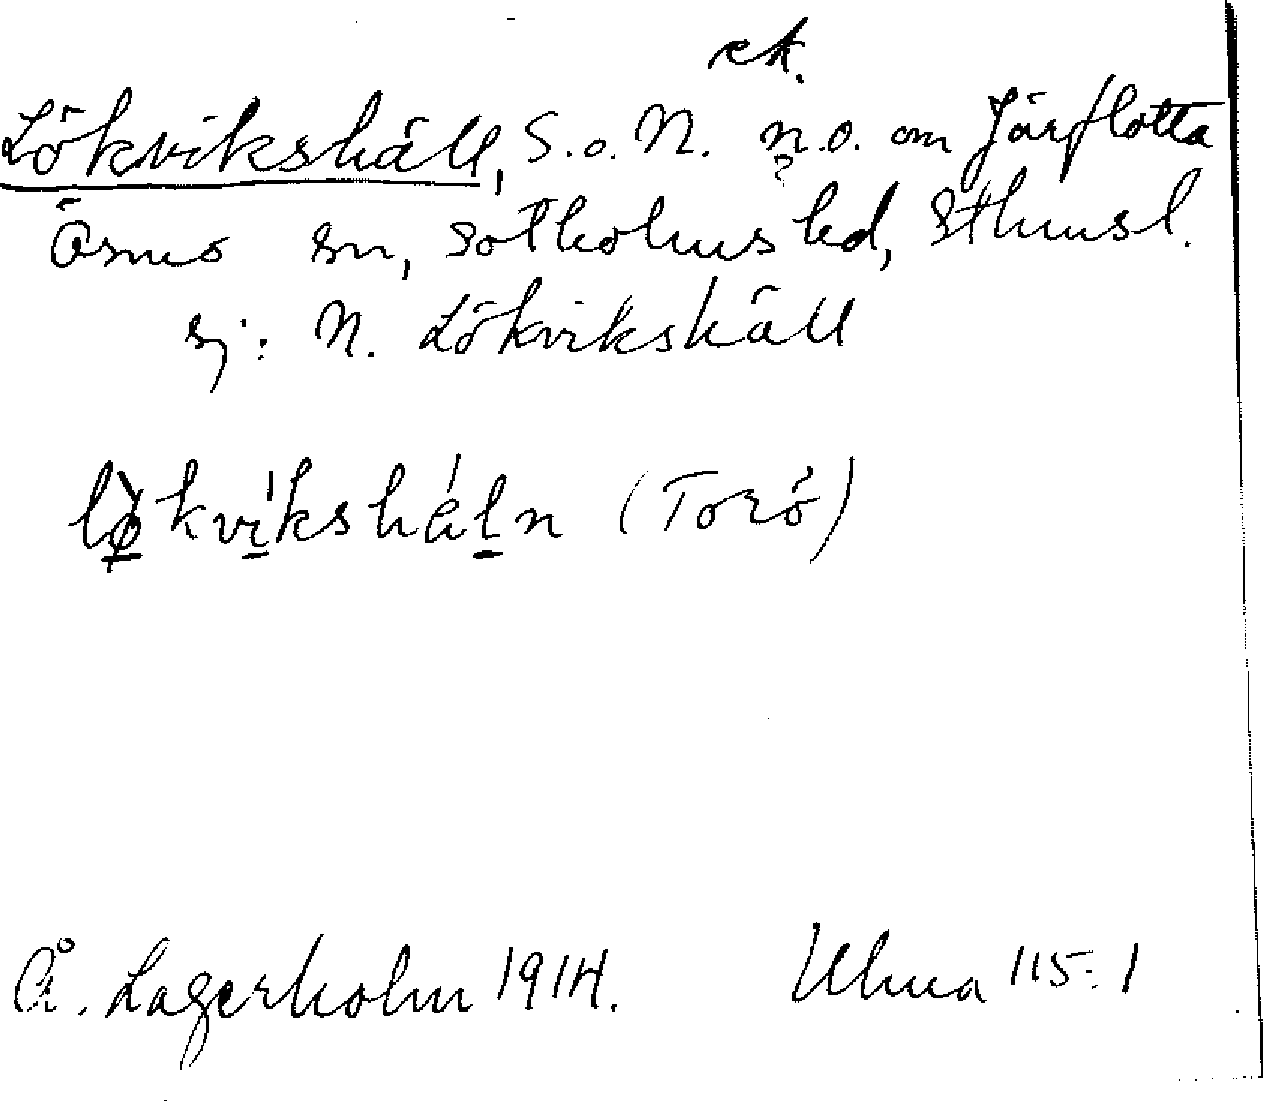 sk.
Lökvikshäll, S. o. N. n.o. om Järflotta
?
Ösmo sn, Sotholms hd, Sthmsl.
sj: N. Lökvikshäll
lø̀kvíkshäḷn (Torö)
Å. Lagerholm 1914. Uhua 115:1